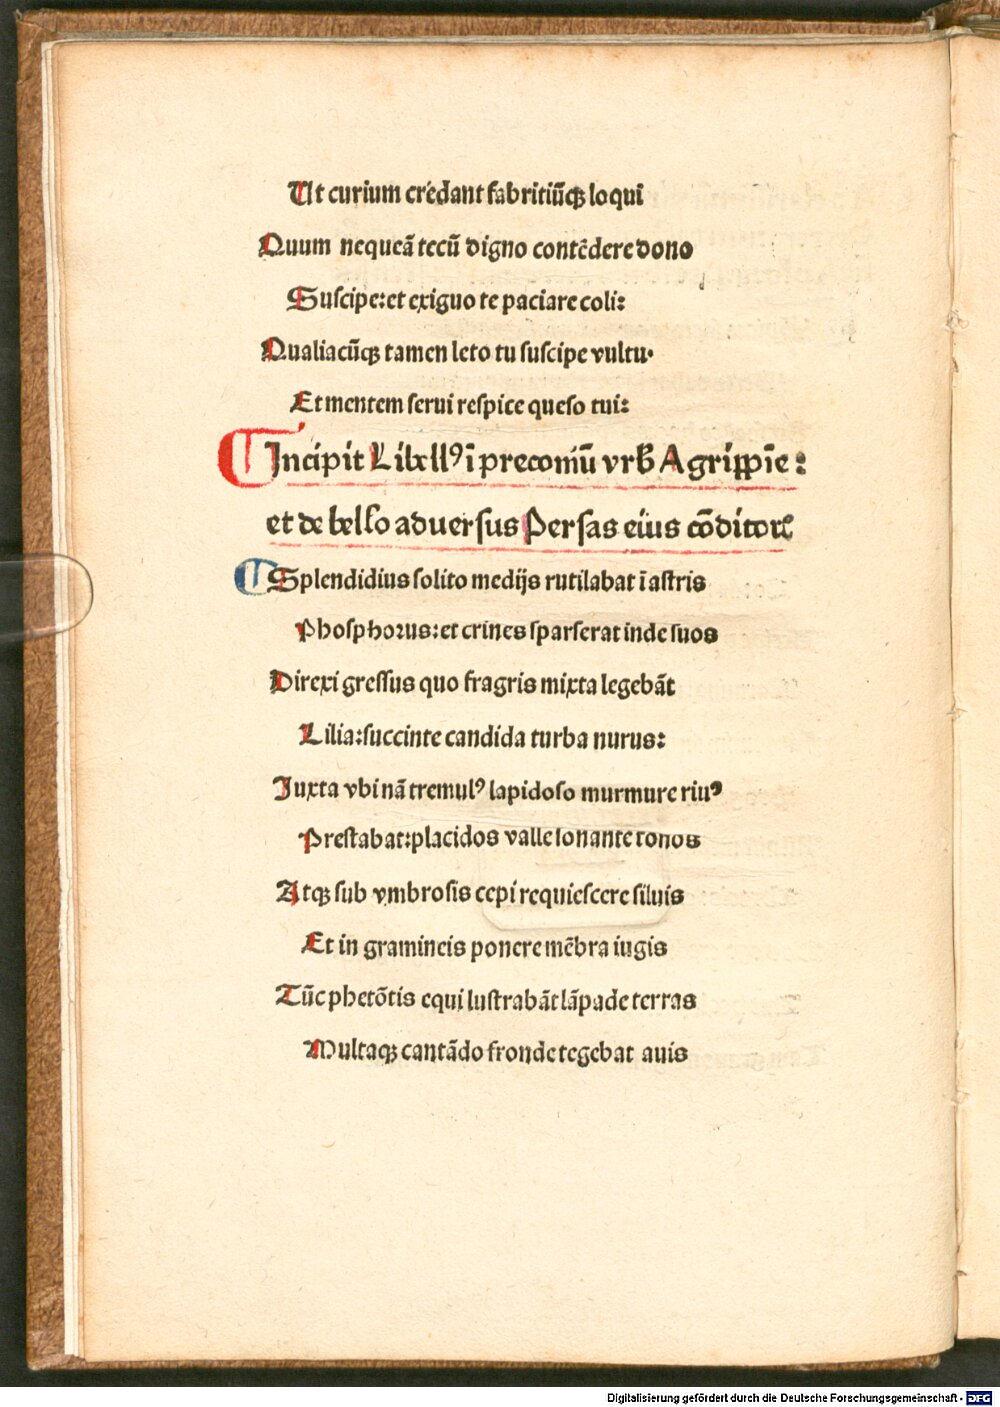 Ut curium credant fabritiūqꝫ loqui
Quum nequeā tecū digno contēdere dono
Suscipe: et exiguo te paciare coli:
Qualiacūqꝫ tamen leto tu suscipe vultu·
Et mentem serui respice queso tui:
Incipit Libellꝰ ī preconiū vrbꝭ Agrippīe:
et de bello aduersus Persas eius cōditoreꝭ
Splendidius solito medijs rutilabat ī astris
Phosphorus: et crines sparserat inde suos
Direxi gressus quo fragris mixta legebāt
Lilia: succinte candida turba nurus:
Juxta vbi nā tremulꝰ lapidoso murmure riuꝰ
Prestabat: placidos valle sonante tonos
Atqꝫ sub vmbrosis cepi requiescere siluis
Et in gramineis ponere mēbra iugis
Tūc phetōtis equi lustrabāt lāpade terras
Multaqꝫ cantādo fronde tegebat auis
Digitalisierung gefördert durch die Deutsche Forschungsgemeinschaft - DFG